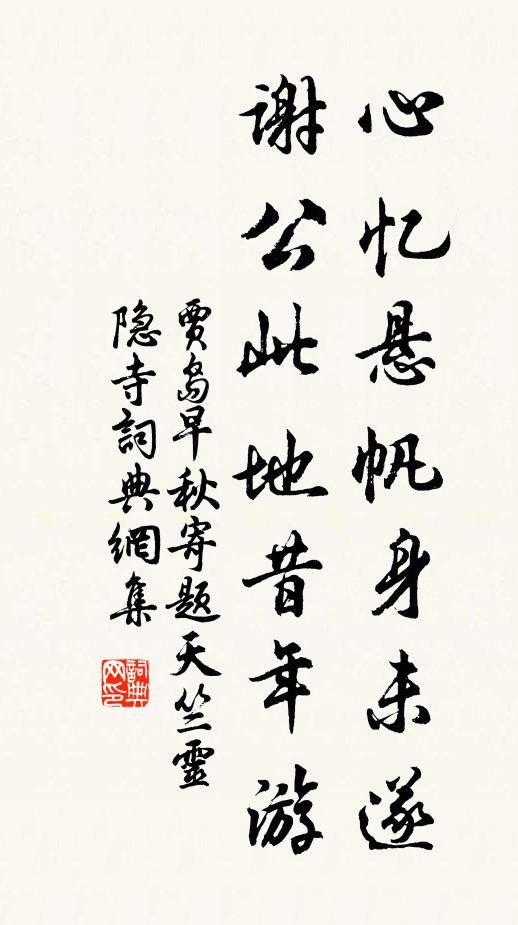 心忆悬帆身未遂
谢公此地昔年游
贾岛早秋寄题天竺靈
隐寺詞典網集
詞典
网印